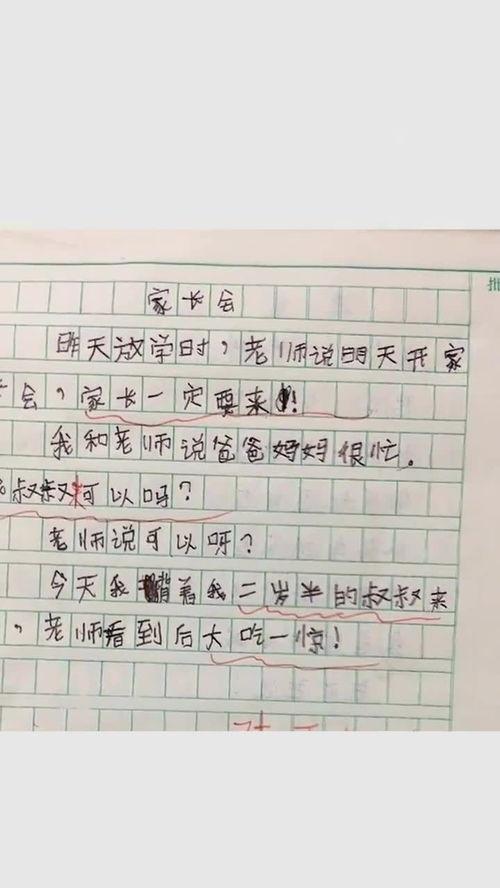 批
家长会
昨天放学时,老师说明天开家
会,家长一定要来!
我和老师说爸爸妈妈很忙。
叔叔来可以吗?
老师说可以呀?
今天我背着我二岁半的叔叔来
,老师看到后大吃一惊!